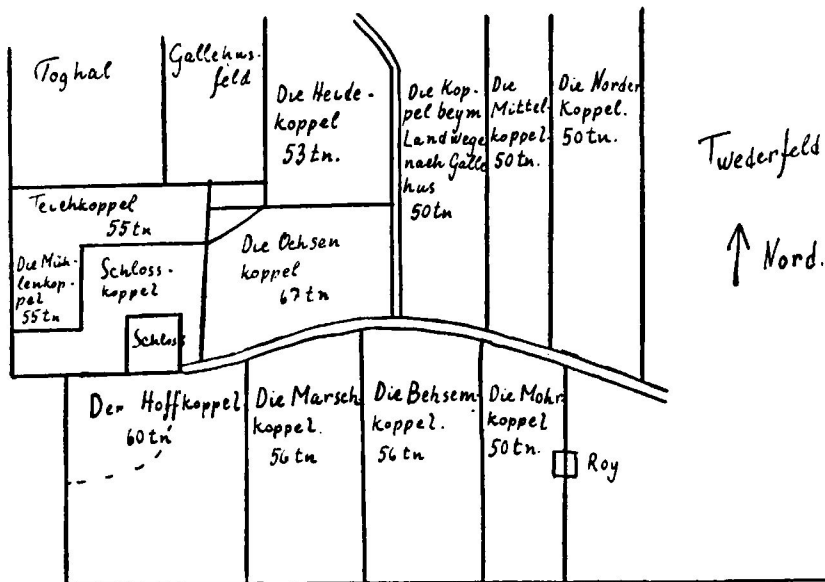 Toghal
Gallehus-
feld
Die Heide-
koppel
53 tn.
Die Kop-
pel beym
Landwege
nach Galle
hus
50 tn
Die
Mittel
koppel.
50 tn.
Die Norder
Koppel.
50 tn.
Twederfeld
Nord.
Teichkoppel
55 tn
Die Müh-
lenkop-
pel
55 tn
Schloss-
koppel
Schloss
Die Ochsen
koppel
67 tn
Der Hoffkoppel
60 tn
Die Marsch
koppel.
56 tn
Die Behsem-
koppel.
56 tn
Die Mohr
koppel
50 tn.
Roy